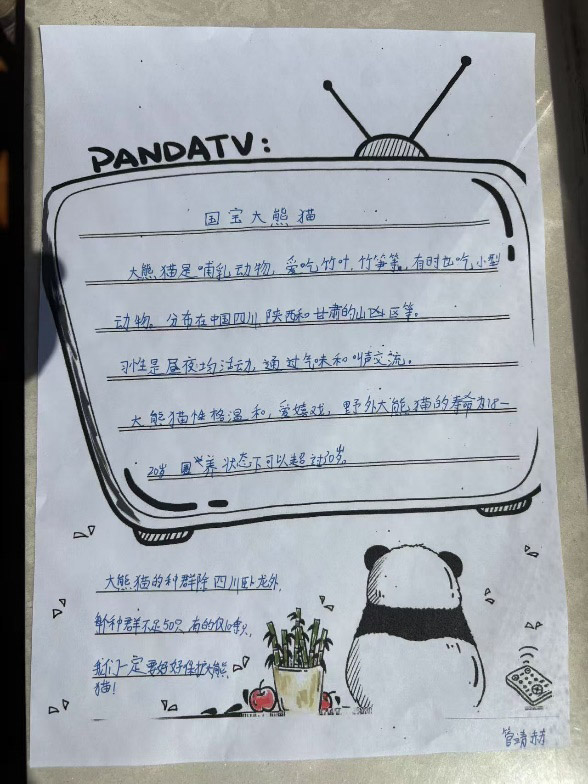 PANDATV:
国宝大熊猫
大熊猫是哺乳动物，爱吃竹叶，竹笋等，有时也吃小型
动物。分布在中国四川，陕西和甘肃的山区等。
习性是昼夜均活动，通过气味和叫声交流。
大熊猫性格温和，爱嬉戏，野外大熊猫的寿命为18一
20岁，圈养状态下可以超过30岁。
大熊猫的种群除四川卧龙外，
每种群不足50只，有的仅10多只，
我们一定要好好保护大熊
猫！
管靖赫